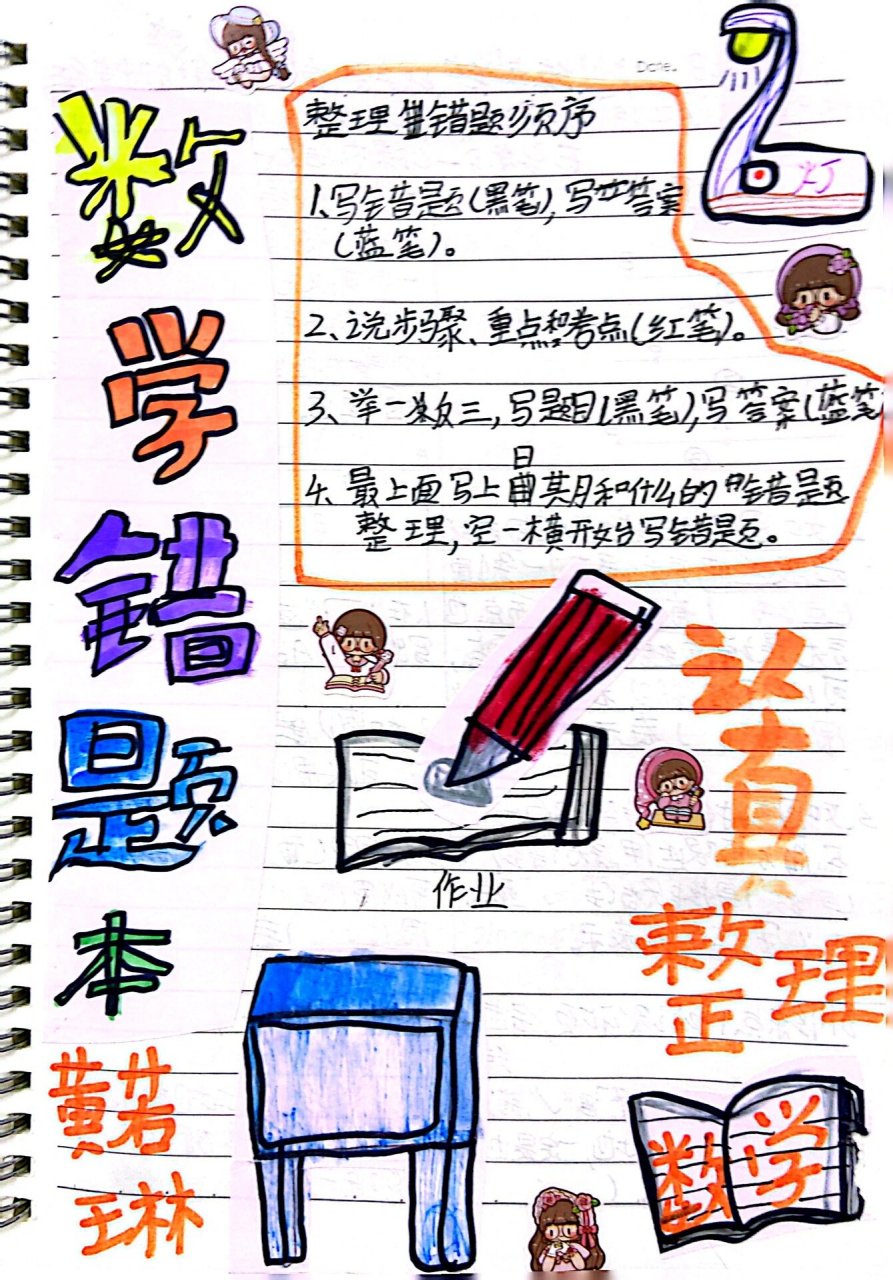 数学错题本
黄若琳
Date.
整理错题顺序
1、写错题(黑笔),写答案
(蓝笔)。
2、说步骤、重点和考点(红笔)。
3、举一数三,写题目(黑笔),写答案(蓝笔
日
4、最上面写上其月和什么的错题
整理,空一横开始台写错题。
灯
作业
认真
整理
数学